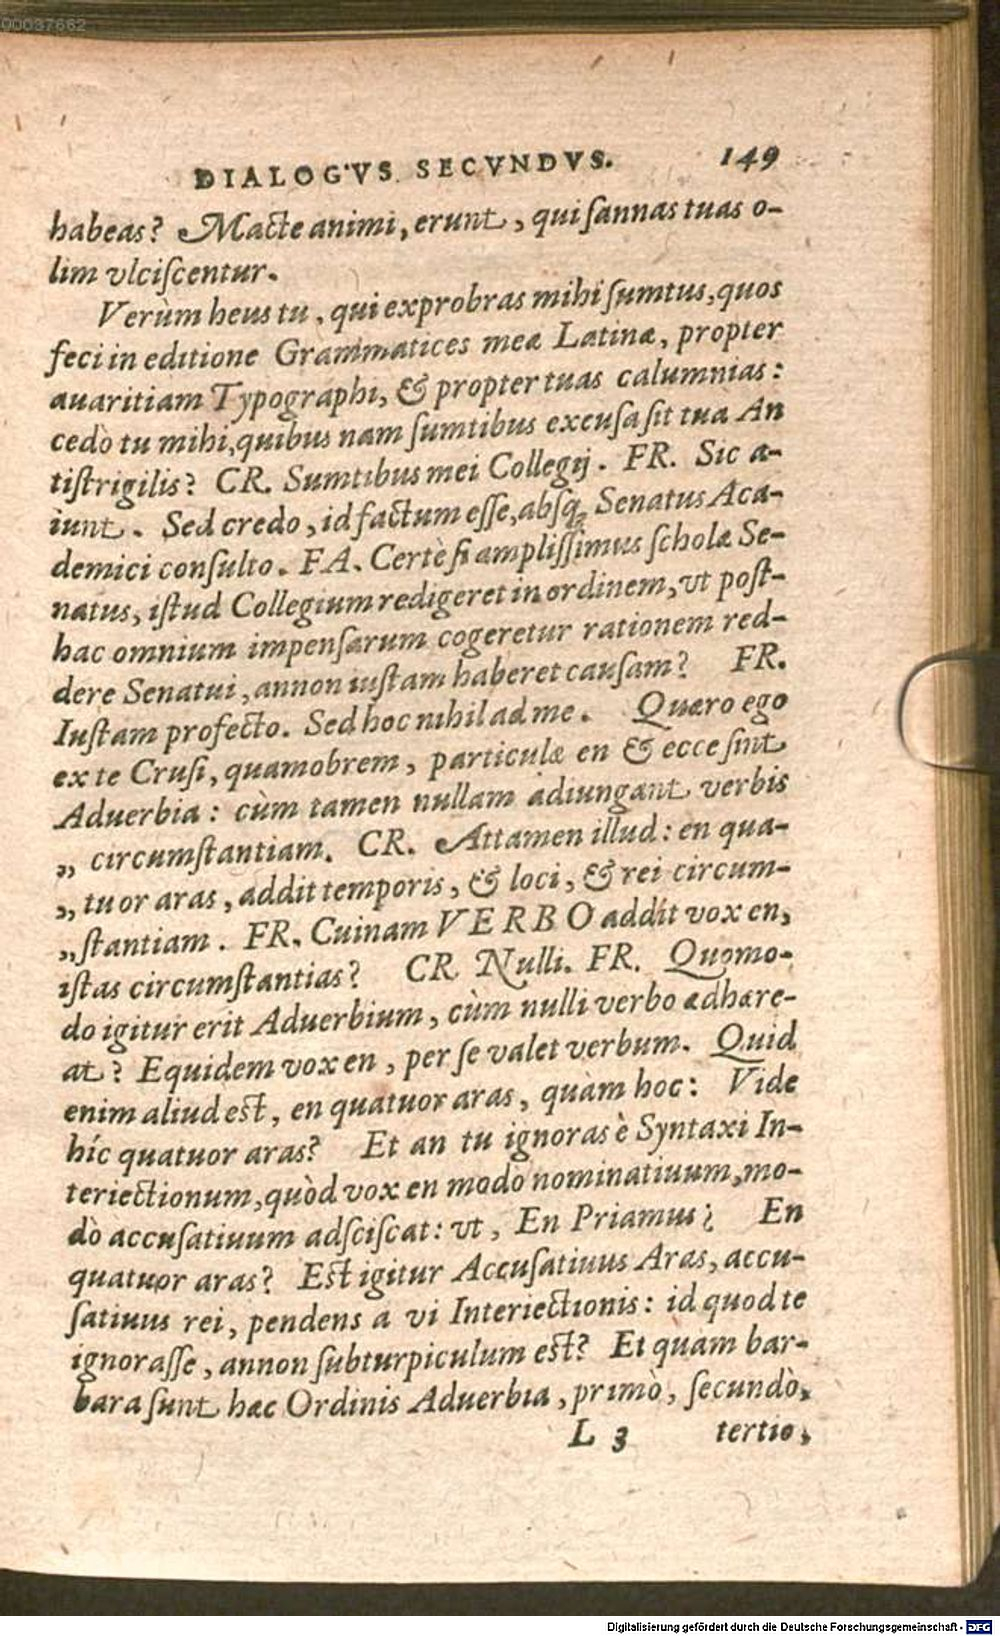 00037662
DIALOGVS SECVNDVS. 149
habeas? Macte animi, erunt, qui sannas tuas o-
lim vlciscentur.
Verùm heus tu, qui exprobras mihi sumtus, quos
feci in editione Grammatices meæ Latinæ, propter
auaritiam Typographi, & propter tuas calumnias:
cedò tu mihi, quibus nam sumtibus excusa sit tua An
tistrigilis? CR. Sumtibus mei Collegij. FR. Sic a-
iunt. Sed credo, id factum esse, absq; Senatus Aca-
demici consulto. FA. Certè si amplissimus scholæ Se-
natus, istud Collegium redigeret in ordinem, vt post-
hac omnium impensarum cogeretur rationem red-
dere Senatui, annon iustam haberet causam? FR.
Iustam profecto. Sed hoc nihil ad me. Quæro ego
ex te Crusi, quamobrem, particulæ en & ecce sint
Aduerbia: cùm tamen nullam adiungant verbis
„ circumstantiam. CR. Attamen illud: en qua-
„ tuor aras, addit temporis, & loci, & rei circum-
„ stantiam. FR. Cuinam VERBO addit vox en,
istas circumstantias? CR. Nulli. FR. Quomo-
do igitur erit Aduerbium, cùm nulli verbo adhære-
at? Equidem vox en, per se valet verbum. Quid
enim aliud est, en quatuor aras, quàm hoc: Vide
híc quatuor aras? Et an tu ignoras è Syntaxi In-
teriectionum, quòd vox en modò nominatiuum, mo-
dò accusatiuum adsciscat: vt, En Priamus? En
quatuor aras? Est igitur Accusatiuus Aras, accu-
satiuus rei, pendens a vi Interiectionis: id quod te
ignorasse, annon subturpiculum est? Et quam bar-
bara sunt hæc Ordinis Aduerbia, primò, secundò,
L 3 tertio,
Digitalisierung gefördert durch die Deutsche Forschungsgemeinschaft - DFG